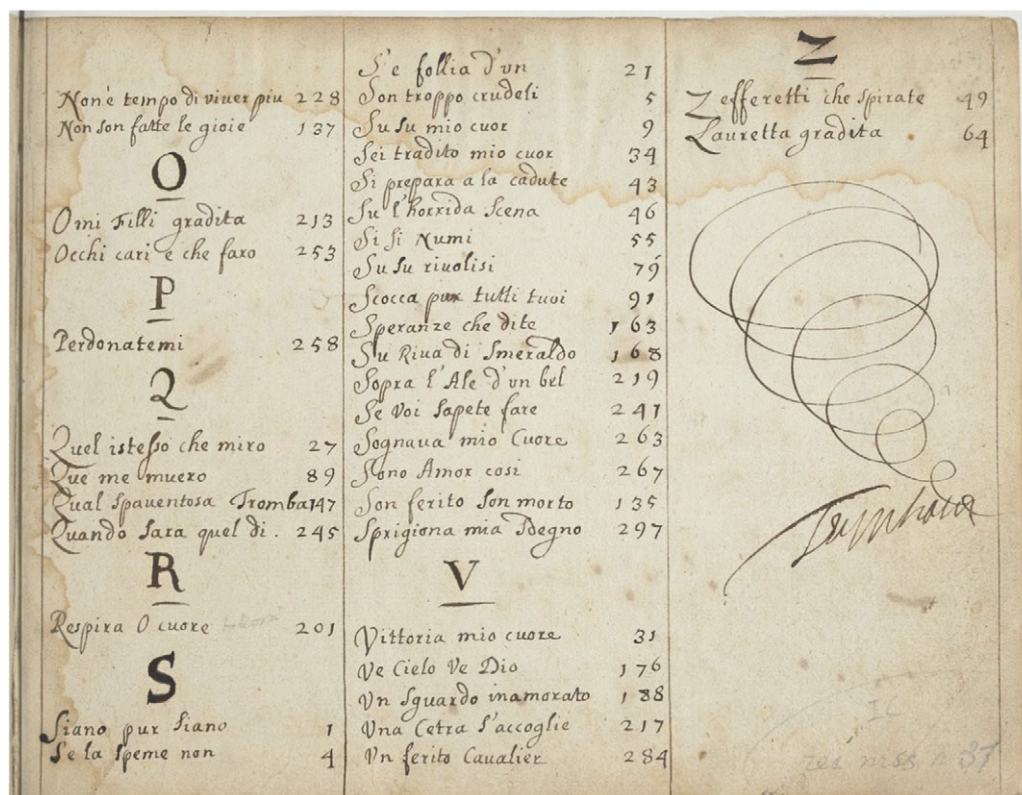 Non è tempo di viver piu 228
Non son fatte le gioie 137
O
O mi Filli gradita 213
Occhi cari e che faro 253
P
Perdonatemi 258
Q
Quel istesso che miro 27
Que me muero 89
Qual spauentosa Tromba 147
Quando sara quel di . 245
R
Respira O cuore 201
S
Siano pur siano 1
Se la speme non 4
S'e follia d'vn 21
Son troppo crudeli 5
Su su mio cuor 9
Sei tradito mio cuor 34
Si prepara a la cadute 43
Su l'horrida scena 46
Si si Numi 55
Su su riuolisi 79
Scocca pur tutti tuoi 91
Speranze che dite 163
Su Riua di Smeraldo 168
Sopra l'Ale d'vn bel 219
Se Voi sapete fare 241
Sognaua mio Cuore 263
Sono Amor cosi 267
Son ferito son morto 135
Sprigiona mia sdegno 297
V
Vittoria mio cuore 31
Ve Cielo Ve Dio 176
Vn sguardo inamorato 188
Vna Cetra s'accoglie 217
Vn ferito Caualier 284
Z
Zefferetti che spirate 49
Lauretta gradita 64
res mss n 37